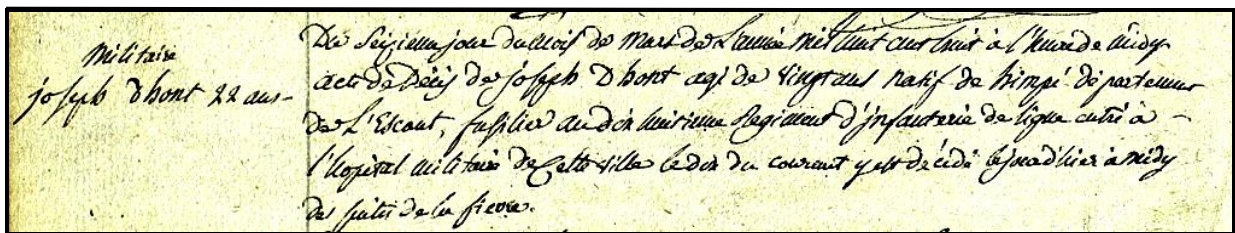 Militaire
joseph Dhont 22 ans
Du Seizieme jour du Mois de Mars de L'année mil huit cent huit à l'heure de midy
acte de Décès de joseph Dhont agé de vingt ans natif de himpé département
de L'Escaut, fusilier au dix huitieme Regiment d'jnfanterie de ligne entré à
l'hopital militaire de Cette ville le dix du courant y est décédé le jour d'hier à midy
des suites de la fievre.